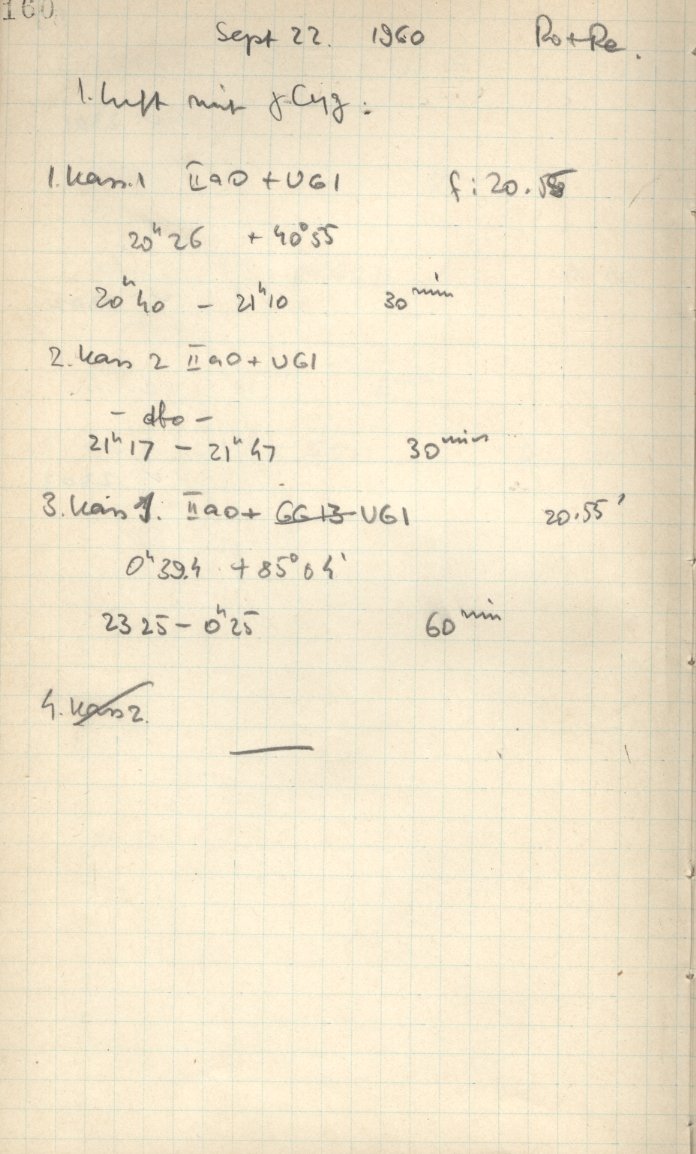 160
Sept 22. 1960 Ro+Re.
1. Luft mit γ Cyg:
1. Kass. 1 IIaO + UG1 f: 20.55
20h 26 + 40°55
20h40 - 21h10 30min
2. Kass 2 IIaO + UG1
- dto -
21h17 - 21h47 30min
3. Kass 1. IIaO + GG13 UG1 20.55'
0h39.4 + 85°04'
23 25 - 0h25 60min
4. Kass 2.